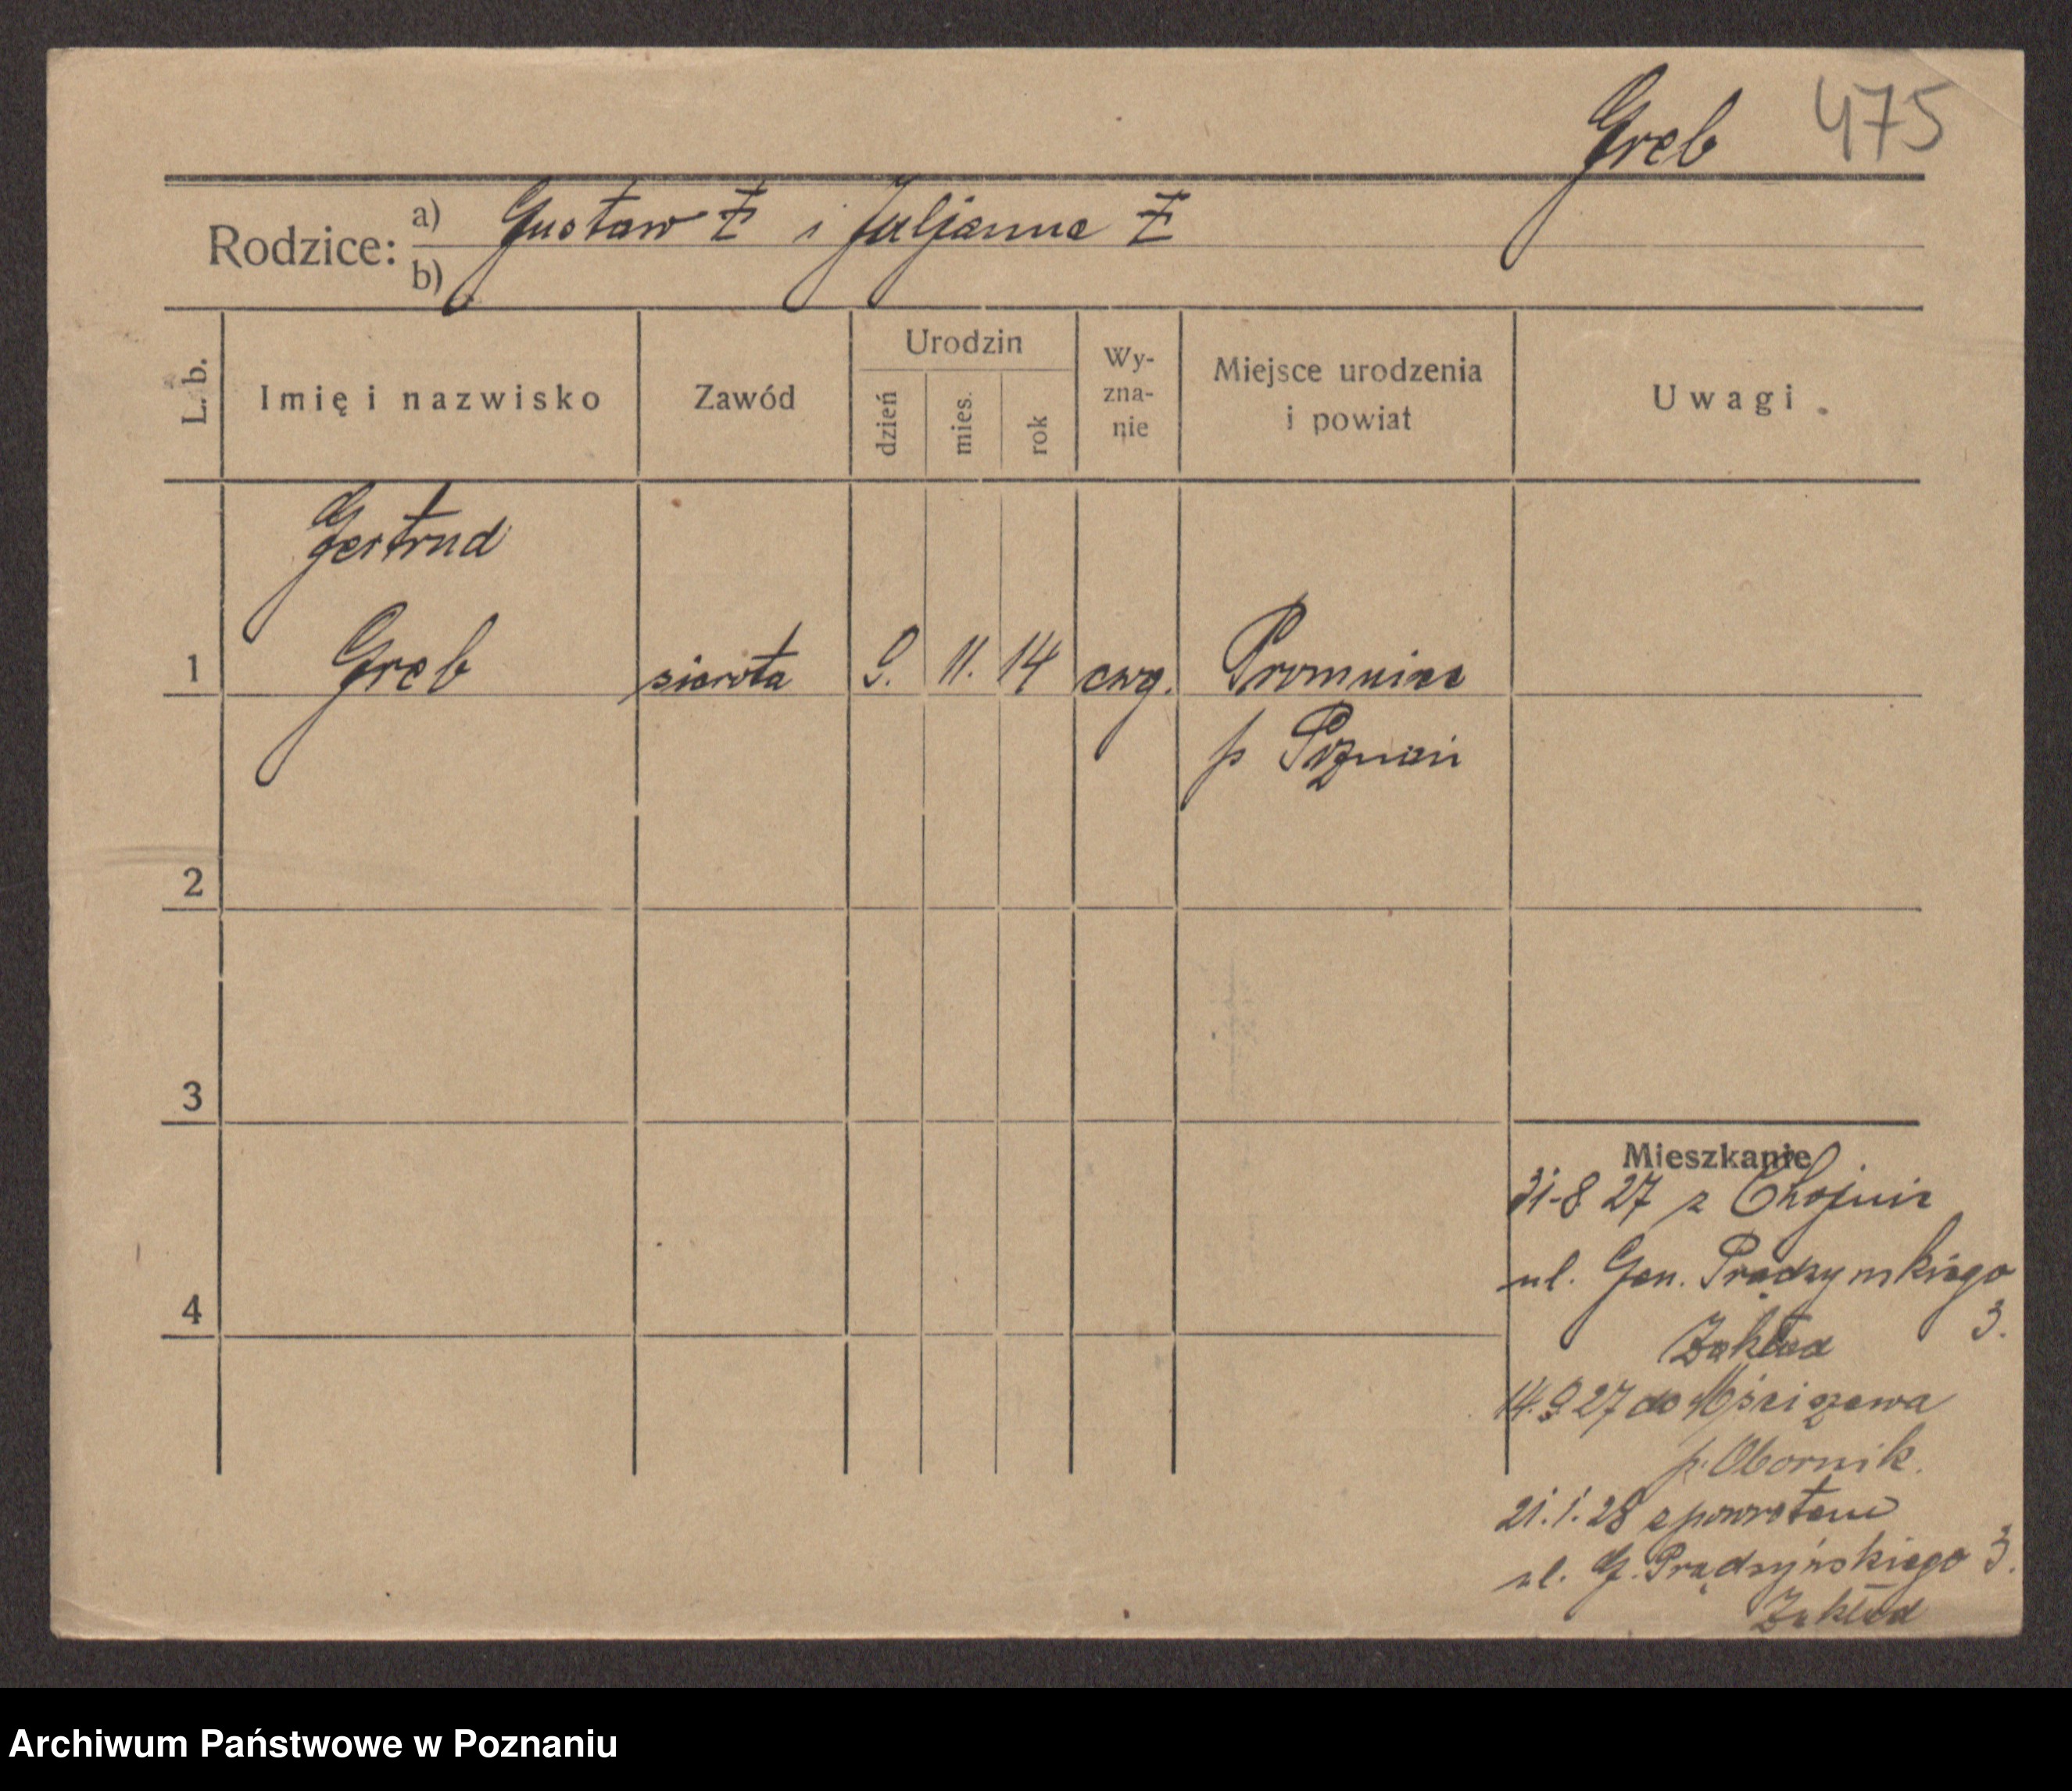 Greb 475
Rodzice: a) Gustaw Ƶ i Juljanna Ƶ
b)
L. b.
Imię i nazwisko
Zawód
Urodzin
dzień
mies.
rok
Wy-
zna-
nie
Miejsce urodzenia
i powiat
Uwagi
Gertrud
1 Greb sierota 9. 11. 14 ewg. Promnice
p Poznań
2
3
4
Mieszkanie
31-8 27 z Chojnic
ul. Gen. Prądzyńskiego
3.
Zakład
14.9 27 do Mściszewa
p. Obornik.
21.1.28 z powrotem
ul. G. Prądzyńskiego 3.
Zakład
Archiwum Państwowe w Poznaniu